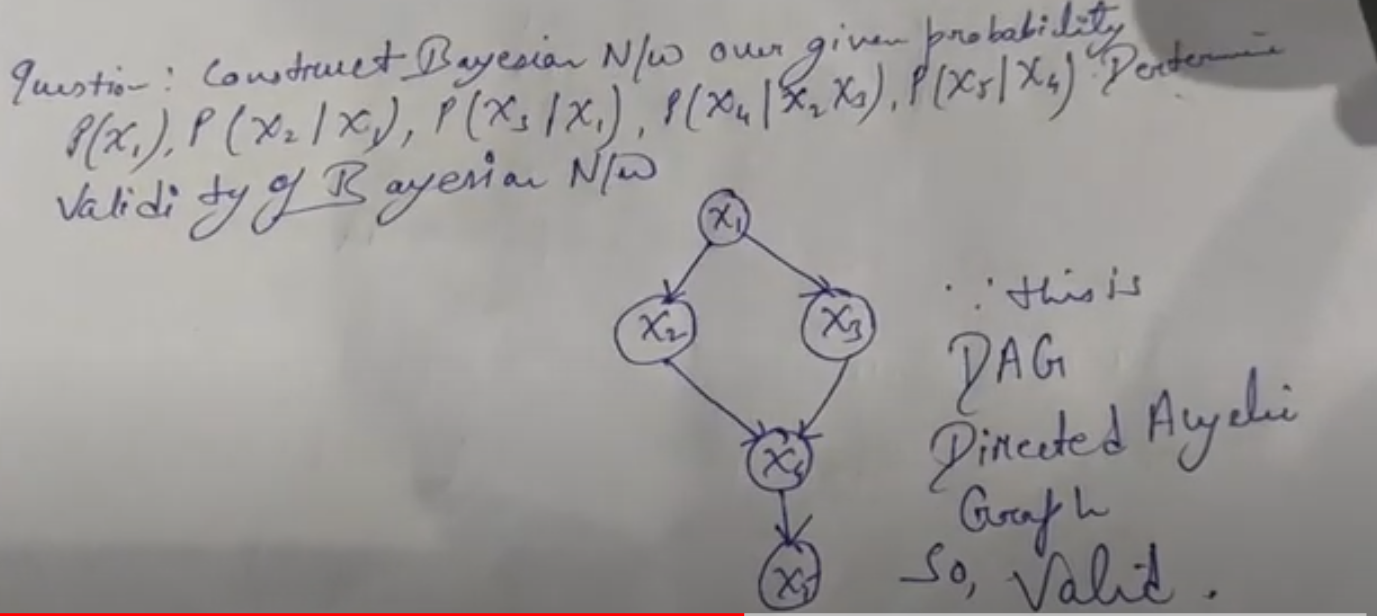 Question: Construct Bayesian N/w over given probability
P(X₁), P(X₂/X₁), P(X₃/X₁), P(X₄/X₂X₃), P(X₅/X₄). Determine
Validity of Bayesian N/w
X₁
X₂ X₃
X₄
X₅
∵ this is
DAG
Directed Acyclic
Graph
So, Valid.